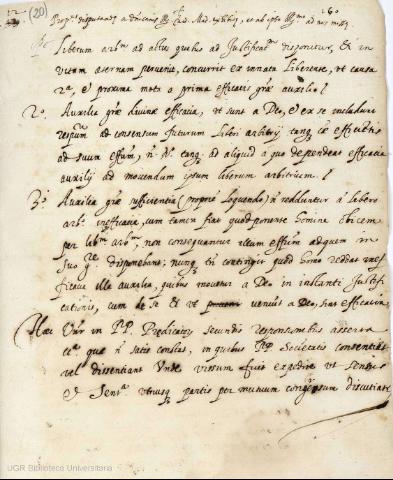 (20)
Liberum arbm ad actus quibus ad Justificatm disponitur, & in
vitam aeternam pervenit, concurrit ex innata libertate, ut causa
2a, et proxima mota a prima efficacis grae auxilio/
2o Auxilia grae divinae efficacia, ut sunt a Deo, et ex se includunt
respum ad consensum futurum liberi arbitrij tanq ad effectum
ad suum effm, n vo tanq ad aliquid a quo dependeat efficacia
auxilij ad movendum ipsum liberum arbitrium /
3o Auxilia grae sufficientia (proprie loquendo) n redduntur a libero
arbo inefficacia, cum tamen fiat quod ponente homine obicem
per libm arbm, non consequantur illum effm ad quem in
suo ge disponebant; nunq tn contingit quod homo reddat inef
ficacia illa auxilia, quibus movetur a Deo in instanti Justifi
cationis, cum de se et ut veniunt a Deo, sint efficacia
Haec Vir in PP. Predicator secundis responsionibus asserta
quae n satis constat, in quibus PP Societatis consentiant
vel dissentiant Unde visum fuit expedire ut sensus
et Senta utriusq partis per mutuum congressum discutiatur
UGR Biblioteca Universitaria